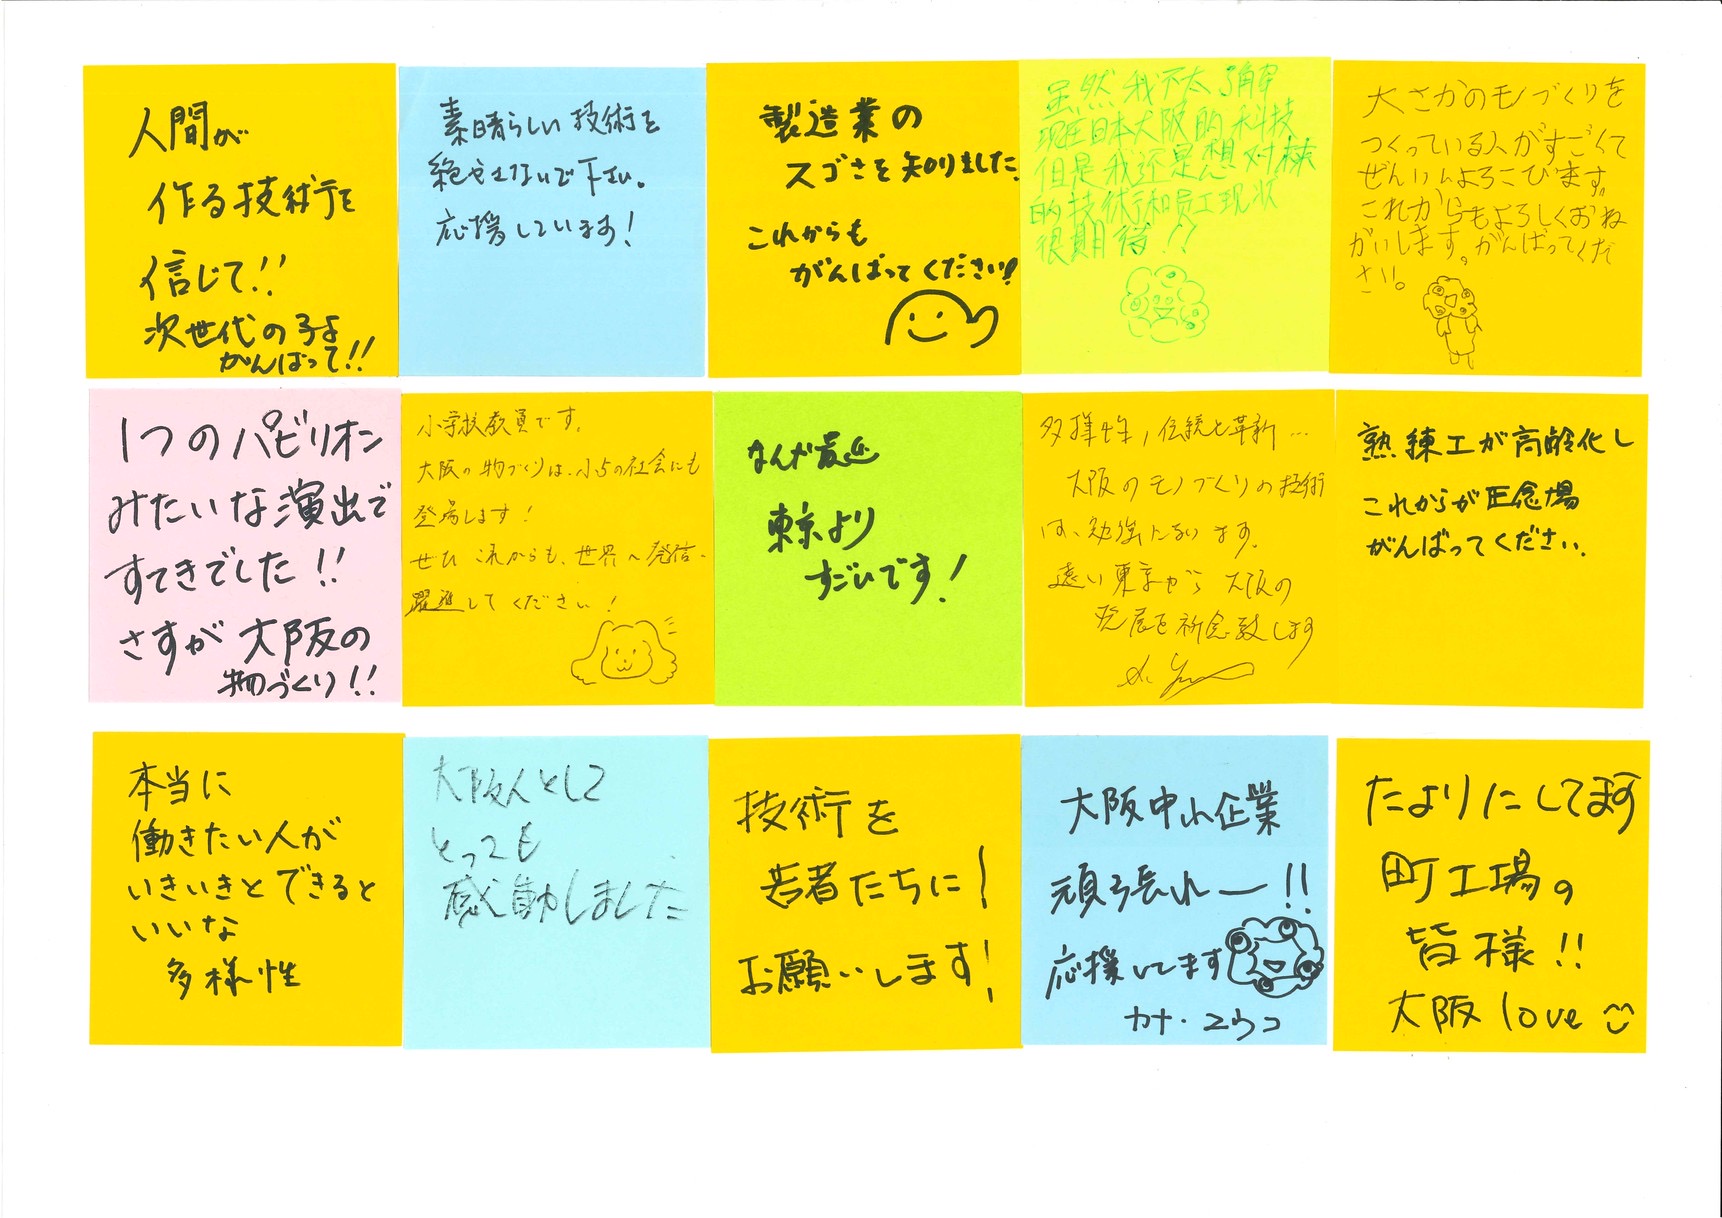 人間が
作る技術を
信じて!!
次世代の子よ
がんばって!!
素晴らしい技術を
絶やさないで下さい。
応援しています!
製造業の
スゴさを知りました。
これからも
がんばってください!
虽然我不太了解
现在日本大阪的科技
但是我还是想对
的技术和员工现状
很期待!!
大さかのモノづくりを
つくっている人がすごくて
ぜんいんよろこびます。
これからもよろしくおね
がいします。がんばってくだ
さい。
1つのパビリオン
みたいな演出で
すてきでした!!
さすが大阪の
物づくり!!
小学校教員です。
大阪の物づくりは、小5の社会にも
登場します!
ぜひこれからも、世界へ発信、
躍進してください!
なんか最近
東京より
すごいです!
多様性,伝統と革新…
大阪のモノづくりの技術
は、勉強になります。
遠い東京から大阪の
発展を祈念致します
熟練工が高齢化し
これからが正念場
がんばってください.
本当に
働きたい人が
いきいきとできると
いいな
多様性
大阪人として
とっても
感動しました
技術を
若者たちに!
お願いします!
大阪中小企業
頑張れー!!
応援してます
カナ・ユウコ
たよりにしてます
町工場の
皆様!!
大阪love